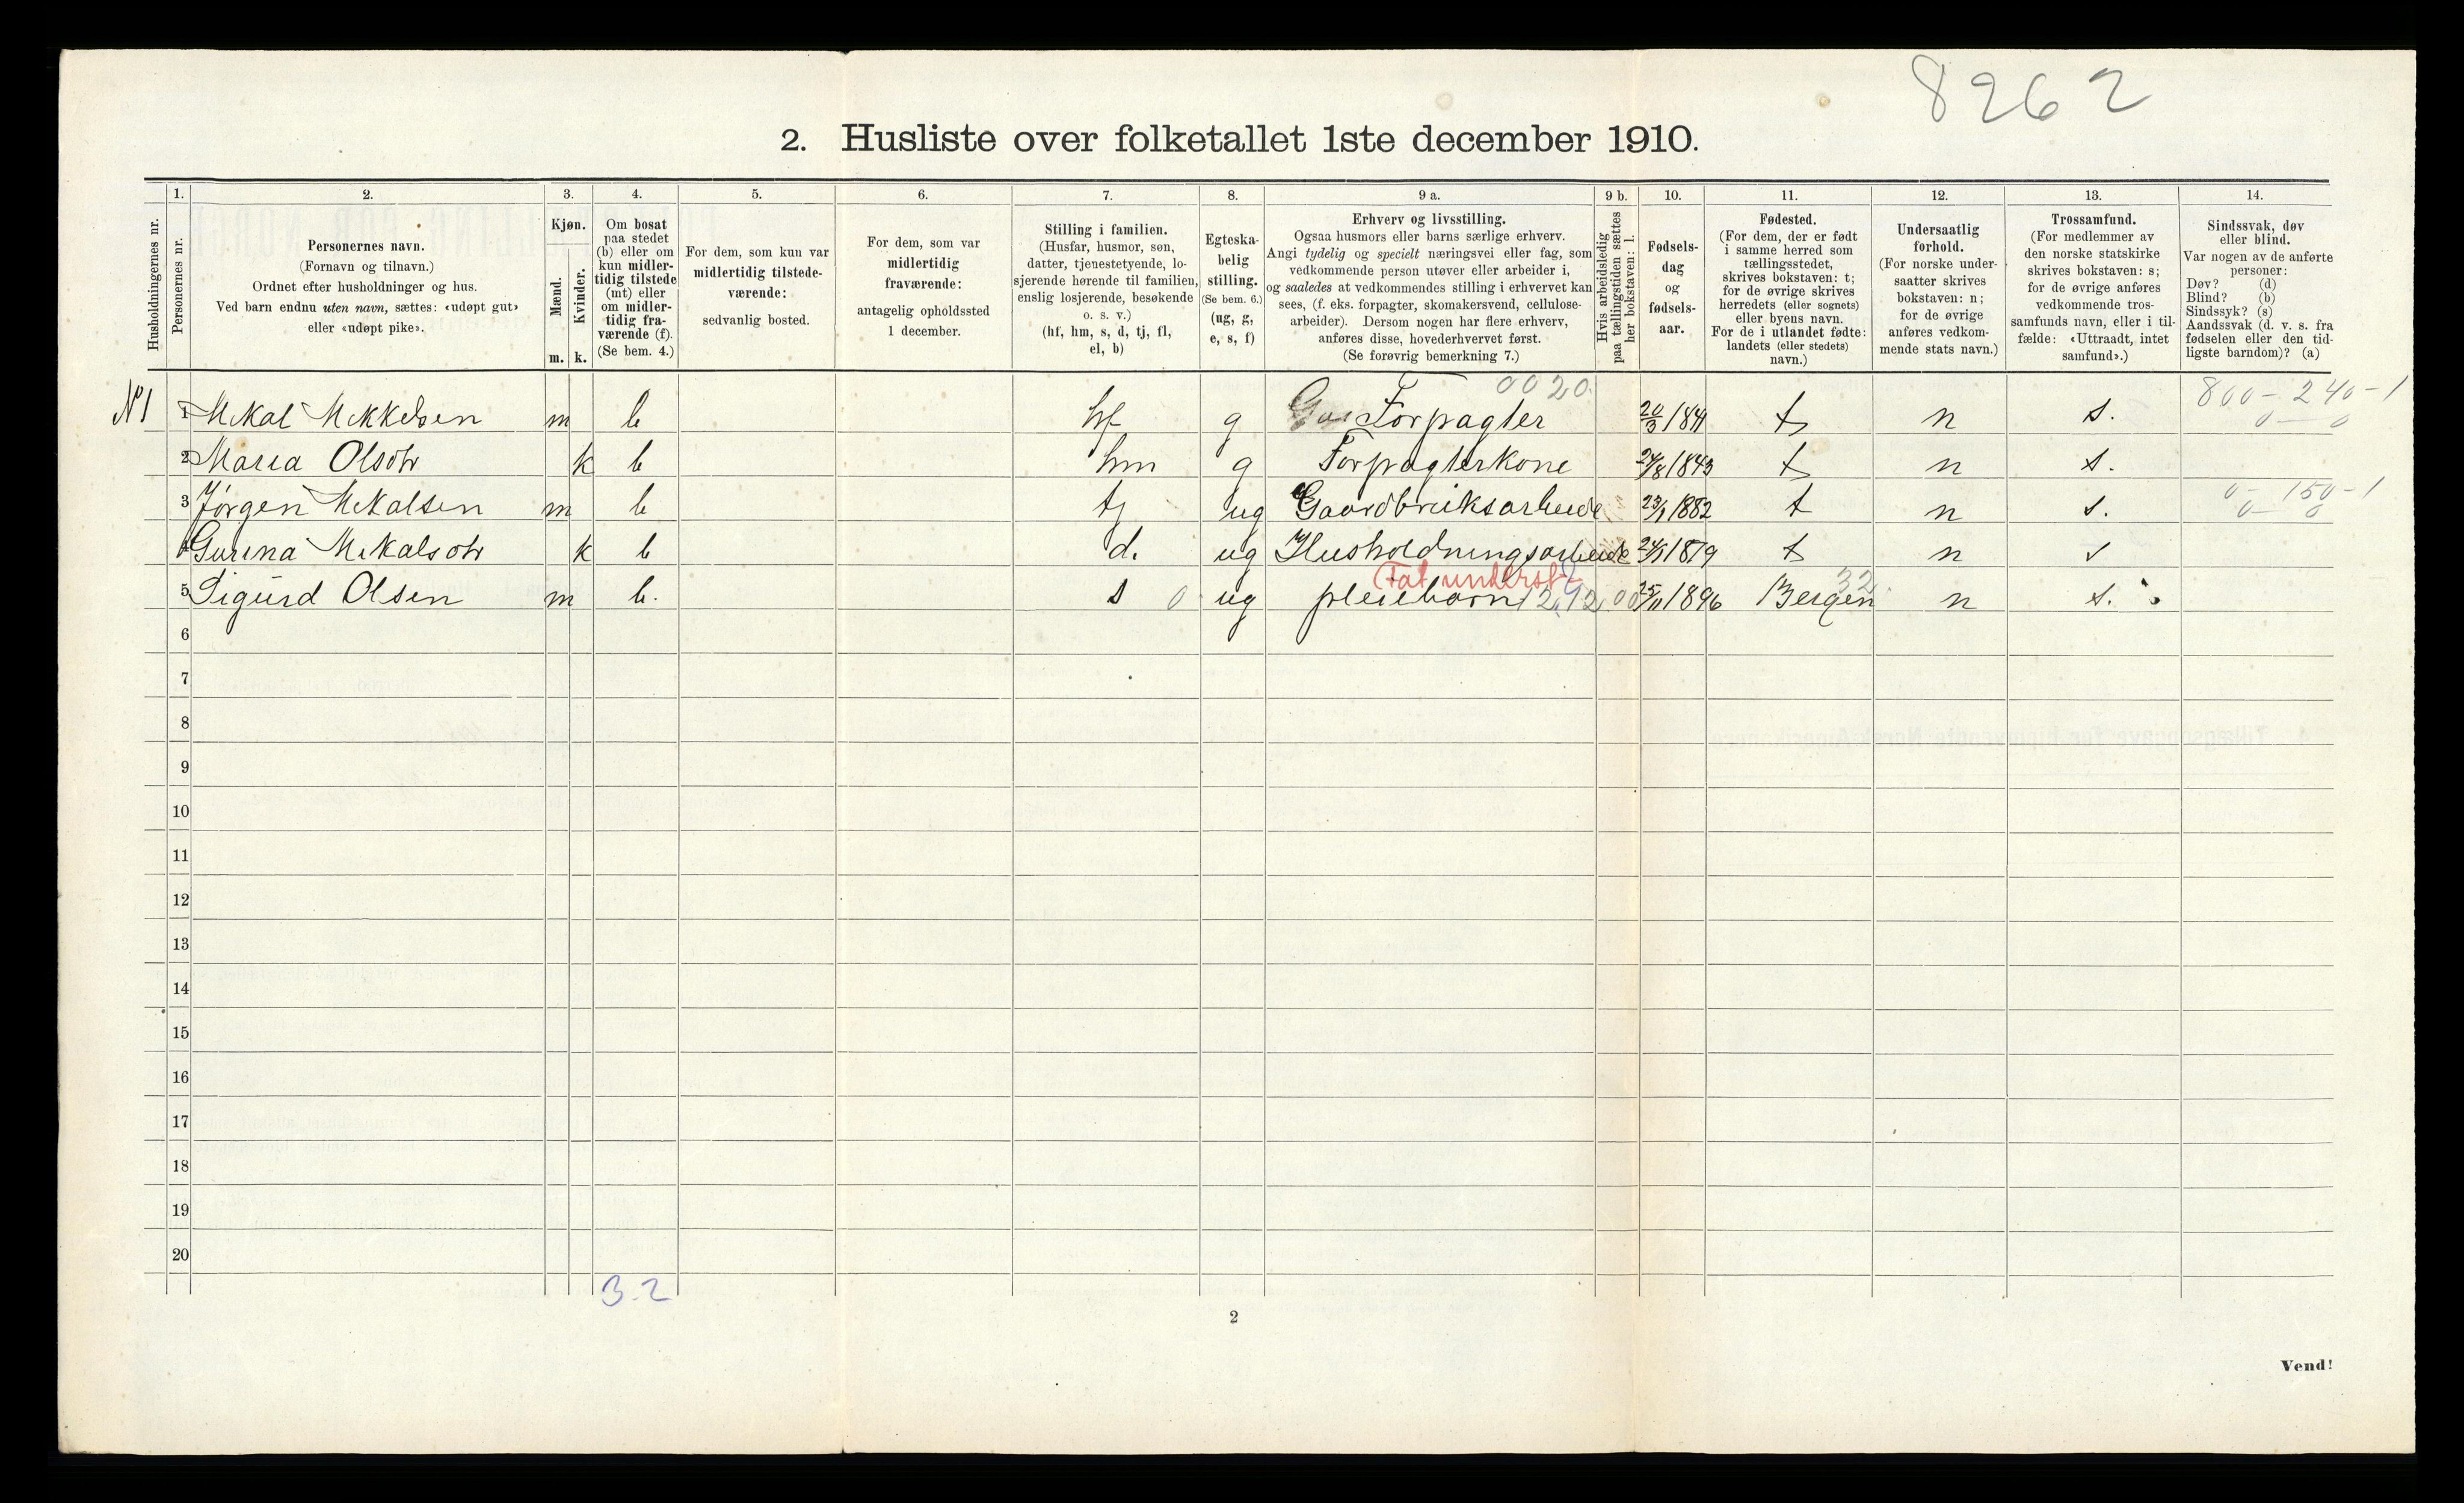 8262
2. Husliste over folketallet 1ste december 1910.
Husholdningernes nr.
1. Personernes nr.
2. Personernes navn.
(Fornavn og tilnavn.)
Ordnet efter husholdninger og hus.
Ved barn endnu uten navn, sættes: «udøpt gut»
eller «udøpt pike».
3. Kjøn.
Mænd. Kvinder.
m. k.
4. Om bosat
paa stedet
(b) eller om
kun midler-
tidig tilstede
(mt) eller
om midler-
tidig fra-
værende (f).
(Se bem. 4.)
5. For dem, som kun var
midlertidig tilstede-
værende:
sedvanlig bosted.
6. For dem, som var
midlertidig
fraværende:
antagelig opholdssted
1 december.
7. Stilling i familien.
(Husfar, husmor, søn,
datter, tjenestetyende, lo-
sjerende hørende til familien,
enslig losjerende, besøkende
o. s. v.)
(hf, hm, s, d, tj, fl,
el, b)
8. Egteska-
belig
stilling.
(Se bem. 6.)
(ug, g,
e, s, f)
9 a. Erhverv og livsstilling.
Ogsaa husmors eller barns særlige erhverv.
Angi tydelig og specielt næringsvei eller fag, som
vedkommende person utøver eller arbeider i,
og saaledes at vedkommendes stilling i erhvervet kan
sees, (f. eks. forpagter, skomakersvend, cellulose-
arbeider). Dersom nogen har flere erhverv,
anføres disse, hovederhvervet først.
(Se forøvrig bemerkning 7.)
9 b. Hvis arbeidsledig
paa tællingstiden sættes
her bokstaven: l.
10. Fødsels-
dag
og
fødsels-
aar.
11. Fødested.
(For dem, der er født
i samme herred som
tællingsstedet,
skrives bokstaven: t;
for de øvrige skrives
herredets (eller sognets)
eller byens navn.
For de i utlandet fødte:
landets (eller stedets)
navn.)
12. Undersaatlig
forhold.
(For norske under-
saatter skrives
bokstaven: n;
for de øvrige
anføres vedkom-
mende stats navn.)
13. Trossamfund.
(For medlemmer av
den norske statskirke
skrives bokstaven: s;
for de øvrige anføres
vedkommende tros-
samfunds navn, eller i til-
fælde: «Uttraadt, intet
samfund».)
14. Sindssvak, døv
eller blind.
Var nogen av de anførte
personer:
Døv? (d)
Blind? (b)
Sindssyk? (s)
Aandssvak (d. v. s. fra
fødselen eller den tid-
ligste barndom)? (a)
0020 800 - 240 - 1
№1 1 Mikal Mikkelsen m b hf g Forpagter 20/3 1841 t n s. 0 — 0
2 Maria Olsdtr k b hm g Forpagterkone 24/8 1843 t n s.
0 - 150 - 1
3 Jørgen Mikalsen m b tj ug Gaardbruksarbeide 23/1 1882 t n s. 0 — 0
4 Gurina Mikalsdtr k b d. ug Husholdningsarbeide 1879 t n s
Fat. underst. 32
5 Sigurd Olsen m b. s 0 ug pleiebarn 15/11 1896 Bergen n s.
6
7
8
9
10
11
12
13
14
15
16
17
18
19
20
3.2
2
Vend!